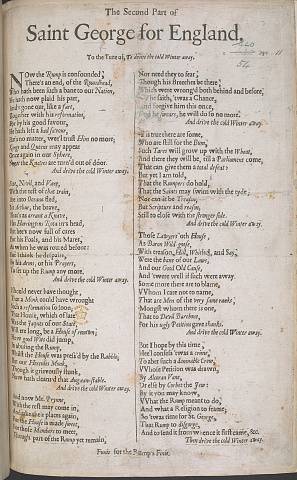 The Second Part of
Saint George for England,
To the Tune of, To drive the cold Winter away.
NOw the Rump is confounded,
There's an end, of the Roundhead,
Who hath been such a bane to our Nation,
He hath now plaid his part,
And's gone out, like a fart,
Together with his reformation,
For by his good favour,
He hath left a bad savour,
But's no matter, wee'l trust Him no more;
Kings and Queens may appear
Once again in our Sphere,
Now the Knaves are turn'd out of door.
And drive the cold winter away.
Nevil, and Vane,
With the rest of that train,
into Oceana fled,
the brave,
That's as arrant a Knave,
Harringtons Rota is's head,
But he's now full of cares
For his Foals, and his Mares,
As when he was routed before:
But I think he despairs,
By his arms, or his Prayers,
To set up the Rump any more.
And drive the cold winter away.
I should never have thought,
That a Monk could have wrought
Such a reformation so soon;
That House, which of late
Was the Jaques of our State
Will ere long, be a House of renoun;
How good Wits did jump,
In abusing the Rump,
Whilst the House was prest'd by the Rabble;
But our Hercules Monk,
Though it grievously stunk,
Now hath cleans'd that Augean-stable.
And drive the cold winter away.
And now Mr. Prynne,
With the rest may come in,
And take their places again,
For the House is made sweet,
For those Members to meet,
Though part of the Rump yet remain,
Nor need they to fear,
Though his Breeches be there
Which were wrong'd both behind and before,
he saith, 'twas a Chance,
And forgive him this once,
And he swears, he will do so no more.
And drive the cold winter away.
'Tis true there are some,
Who are still for the Bum,
Such Tares will grow up with the Wheat,
And there they will be, till a Parliament come,
That can give them a total defeat:
But yet I am told,
That the Rumpers do hold,
That the Saints may swim with the tyde;
Nor can it be Treason,
But Scripture and reason,
Still to close with the stronger side.
And drive the cold winter away.
Those Lawyers o'th House,
As Baron Wild-goose,
With treason, Hill, Whitlock, and Say,
Were the bane of our Laws,
And our Good Old Cause,
And 'twere well if such were away.
Some more there are to blame,
VVhom I care not to name,
That are Men of the very same ranks;
'Mongst whom there is one,
That to Devil Barebone,
For his ugly Petition gave thanks.
And drive the cold winter away.
But I hope by this time,
Hee'l confess 'twas a crime,
To abet such a damnable Crew,
VVhose Petition was drawn,
By Alcoran Vane,
Or else by Corbet the Jew:
By it you may know,
VVhat the Rump meant to do,
And what a Religion to frame;
So 'twas time for St. George,
That Rump to disgorge,
And to send it from whence it first came, &c.
Then drive the cold winter away.